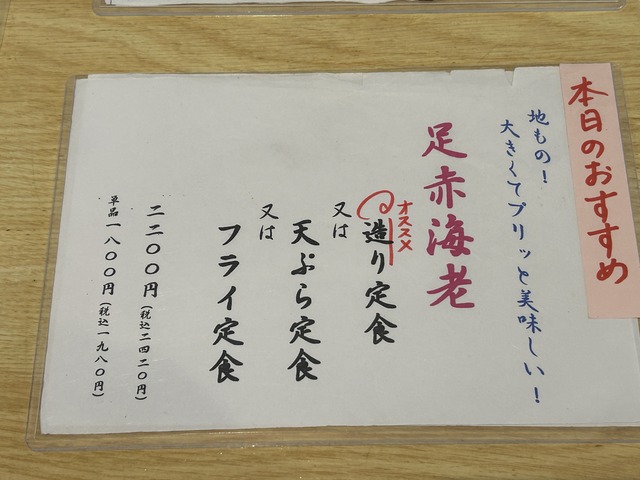 本日のおすすめ
地もの!
大きくてプリッと美味しい!
足赤海老
オススメ
造り定食
又は
天ぷら定食
又は
フライ定食
二二〇〇円(税込二四二〇円)
単品一八〇〇円(税込一九八〇円)